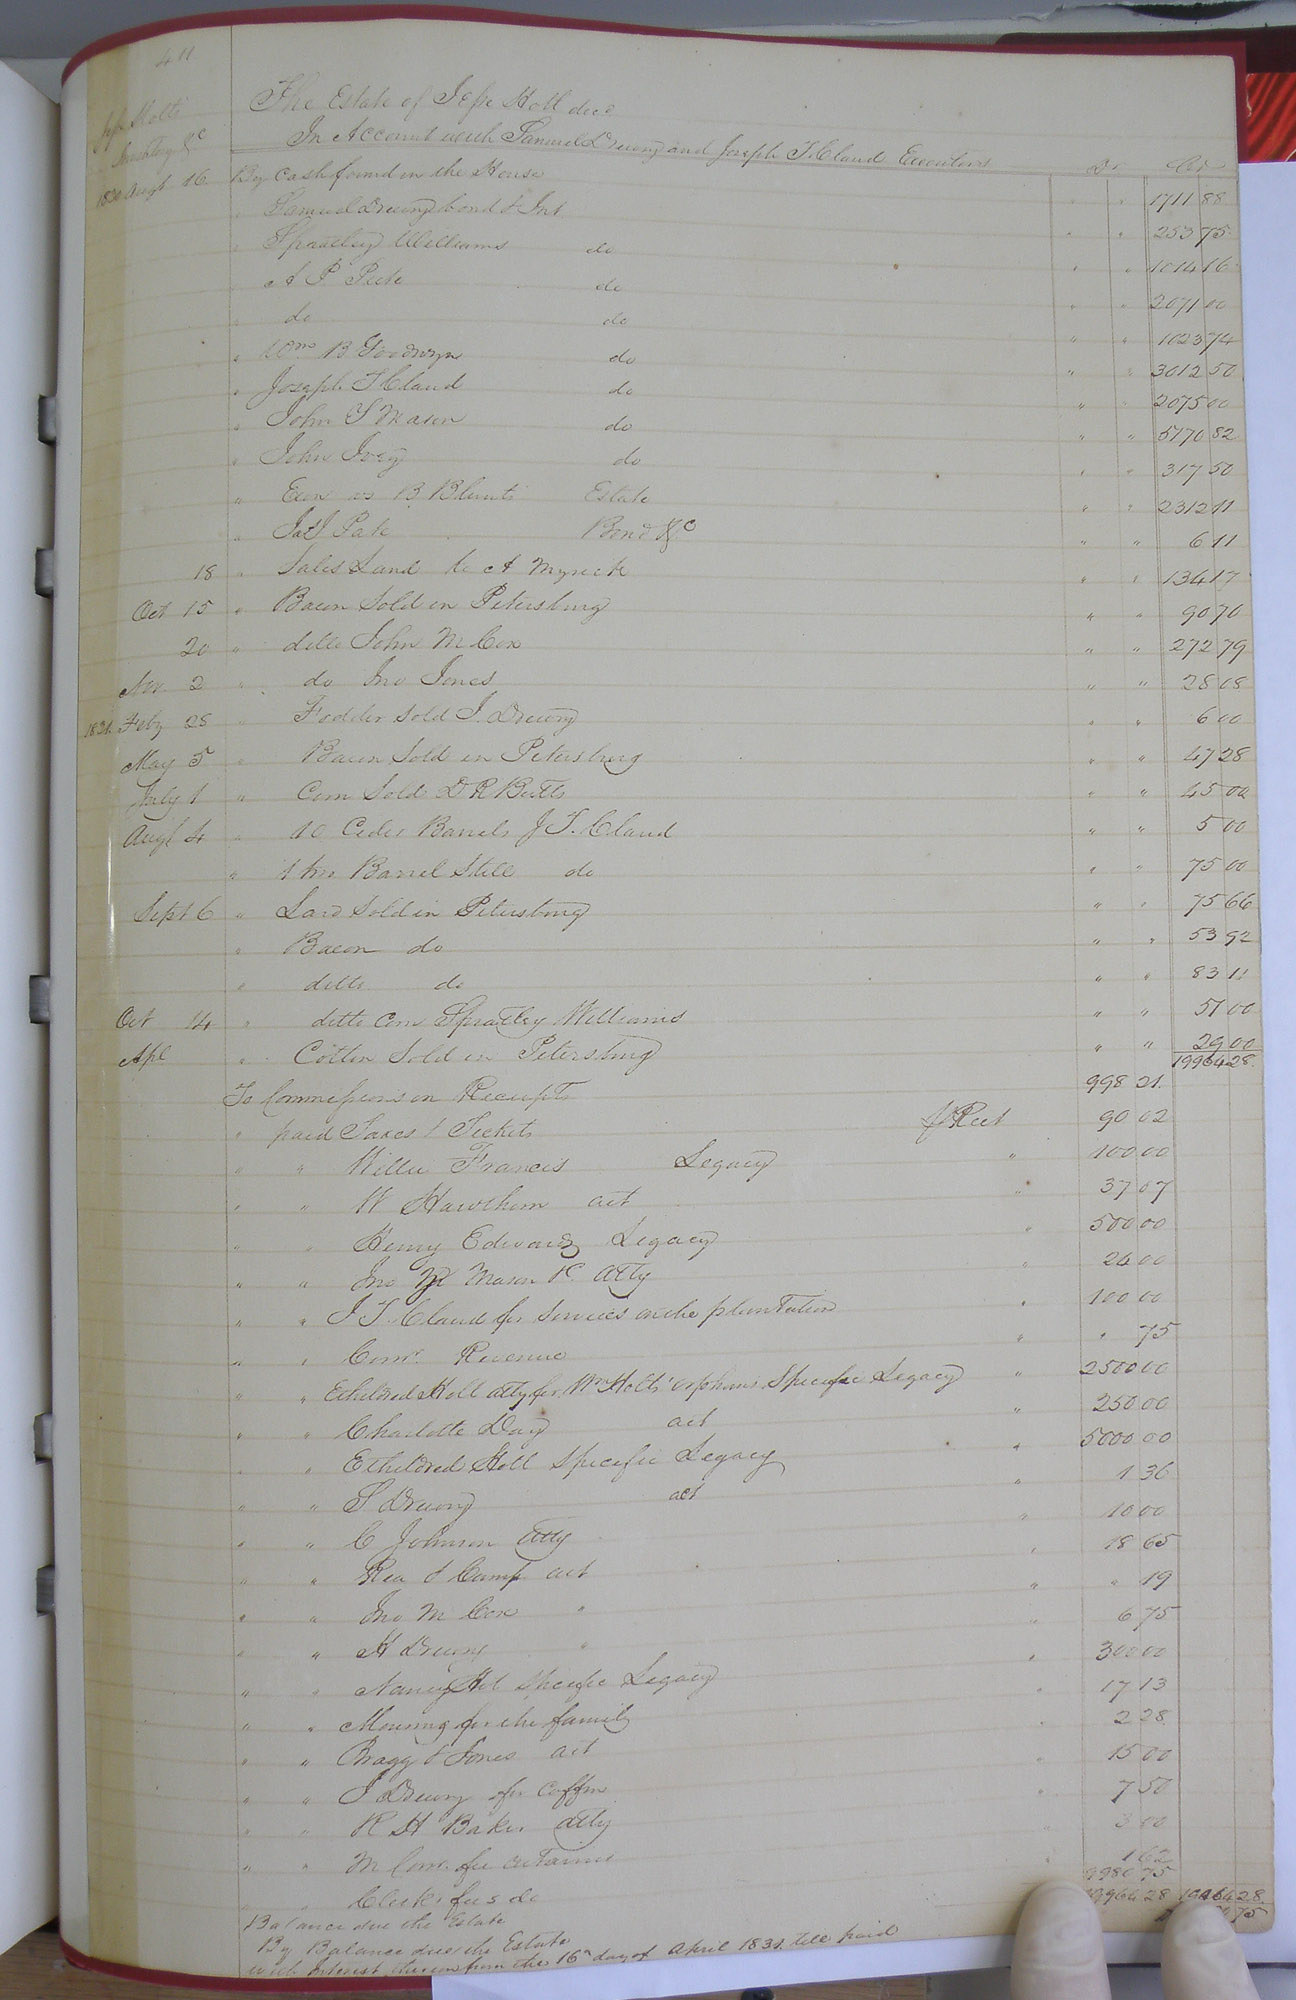 411
Jesse Holts
Inventory &c
The Estate of Jesse Holt decd
In Account with Samuel Drewry and Joseph T. Claud Executors Dr Cr
1830 Augt 16 By Cash found in the House " " 1711 88
" Samuel Drewry bond & Int " " 253 75
" Spratley Williams do " " 1014 16
" A P Peete do " " 2071 00
" do do " " 1023 74
" Wm B Goodwyn do " " 3012 50
" Joseph T Claud do " " 2075 00
" John Y Mason do " " 5170 82
" John Ivey do " " 317 50
" Exor as B Blunts Estate " " 2312 11
" Jas J Pate Bond &c " " 6 11
18 " Sales Land to A Myrick " " 134 17
Oct 15 " Bacon Sold in Petersburg " " 90 70
20 " ditto John M Cox " " 272 79
Nov 2 " do Jno Jones " " 28 08
1831 Feby 28 " Fodder Sold S. Drewry " " 6 00
May 5 " Bacon Sold in Petersburg " " 47 28
July 1 " Corn Sold D R Butts " " 45 00
Augt 4 " 10 Cider Barrels J T. Claud " " 5 00
" 1 Barrel Still do " " 75 00
Sept 6 " Lard Sold in Petersburg " " 75 66
" Bacon do " " 53 92
" ditto do " " 83 11
Oct 14 " ditto Corn Spratley Williams " " 51 00
Apl " Cotton Sold in Petersburg " " 29 00
19964 28
To Commissions on Receipts 998 21
" paid Taxes & Tickets Rect 90 02
" " Willie Francis Legacy " 100 00
" " W Hawthorn act " 37 07
" " Henry Edwards Legacy " 500 00
" " Jno Y Mason atty " 24 00
" " J T. Claud for Services on the plantation " 100 00
" " Comr. Revenue " " 75
" " Etheldred Holt atty for Wm Holts' orphans Specific Legacy " 2500 00
" " Charlotte Day act " 250 00
" " Etheldred Holt Specific Legacy " 5000 00
" " S. Drewry act " 1 36
" " C Johnson atty " 10 00
" " Rea & Camp act " 18 65
" " Jno M Cox " " " 19
" " H Drewry " " 6 75
" " Nancy Holt Specific Legacy " 300 00
" " Mourning for the family " 17 13
" " Bragg & Jones act " 2 28
" " S Drewry for Coffin " 15 00
" " R H Baker atty " 7 50
" " M Com. fee 3 00
" " Clerks fees do 1 62
Balance due the Estate 9980 75
19964 28 19964 28
By Balance due the Estate 75
with Interest thereon from the 16th day of April 1831 till paid